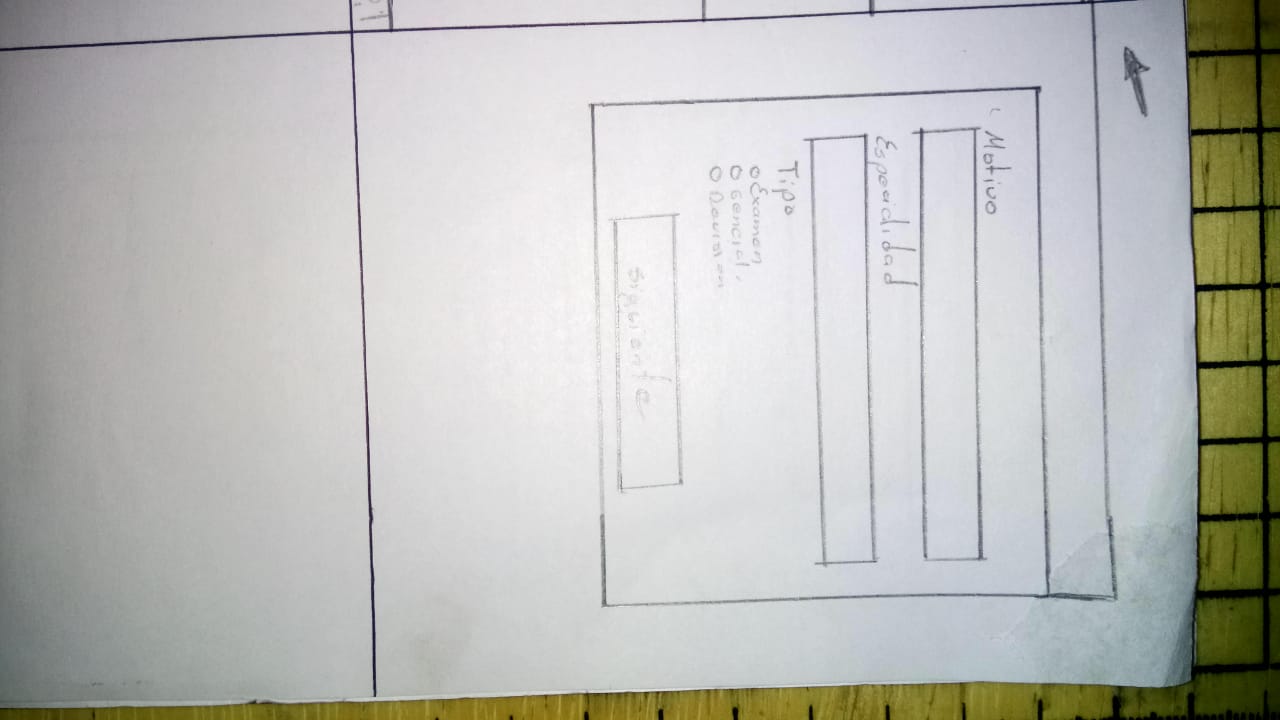 Motivo
Especialidad
Tipo
O Examen
O
O
Siguiente